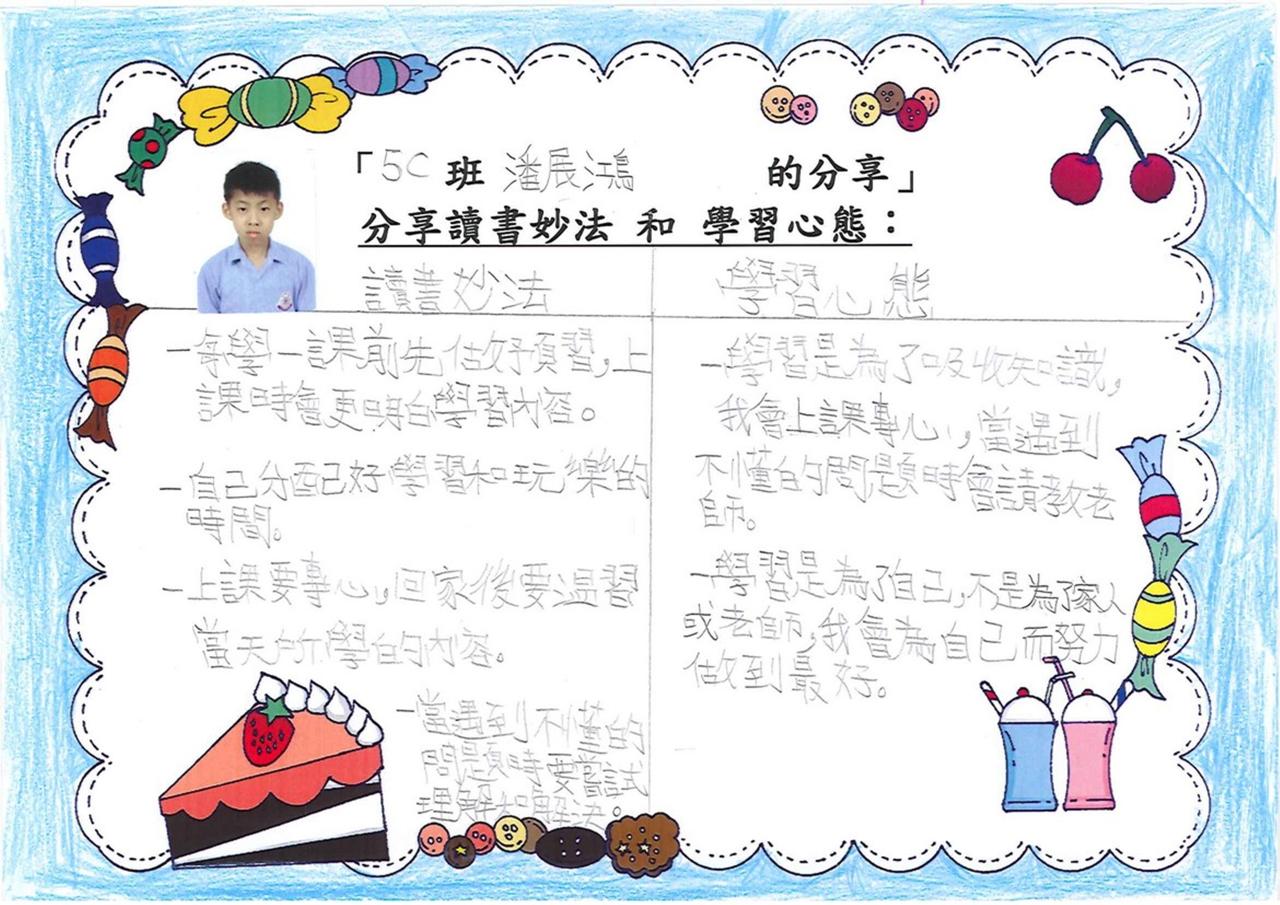 「5C 班 潘展鴻 的分享」
分享讀書妙法 和 學習心態：
讀書妙法
一每學一課前先做好預習，上
課時會更明白學習內容。
一自己分配好學習和玩樂的
時間。
一上課要專心，回家後要溫習
當天所學的內容。
一當遇到不懂的
問題時要嘗試
理解和解決。
學習心態
一學習是為了吸收知識，
我會上課專心，當遇到
不懂的問題時會請教老
師。
一學習是為了自己，不是為了家人
或老師，我會為自己而努力
做到最好。